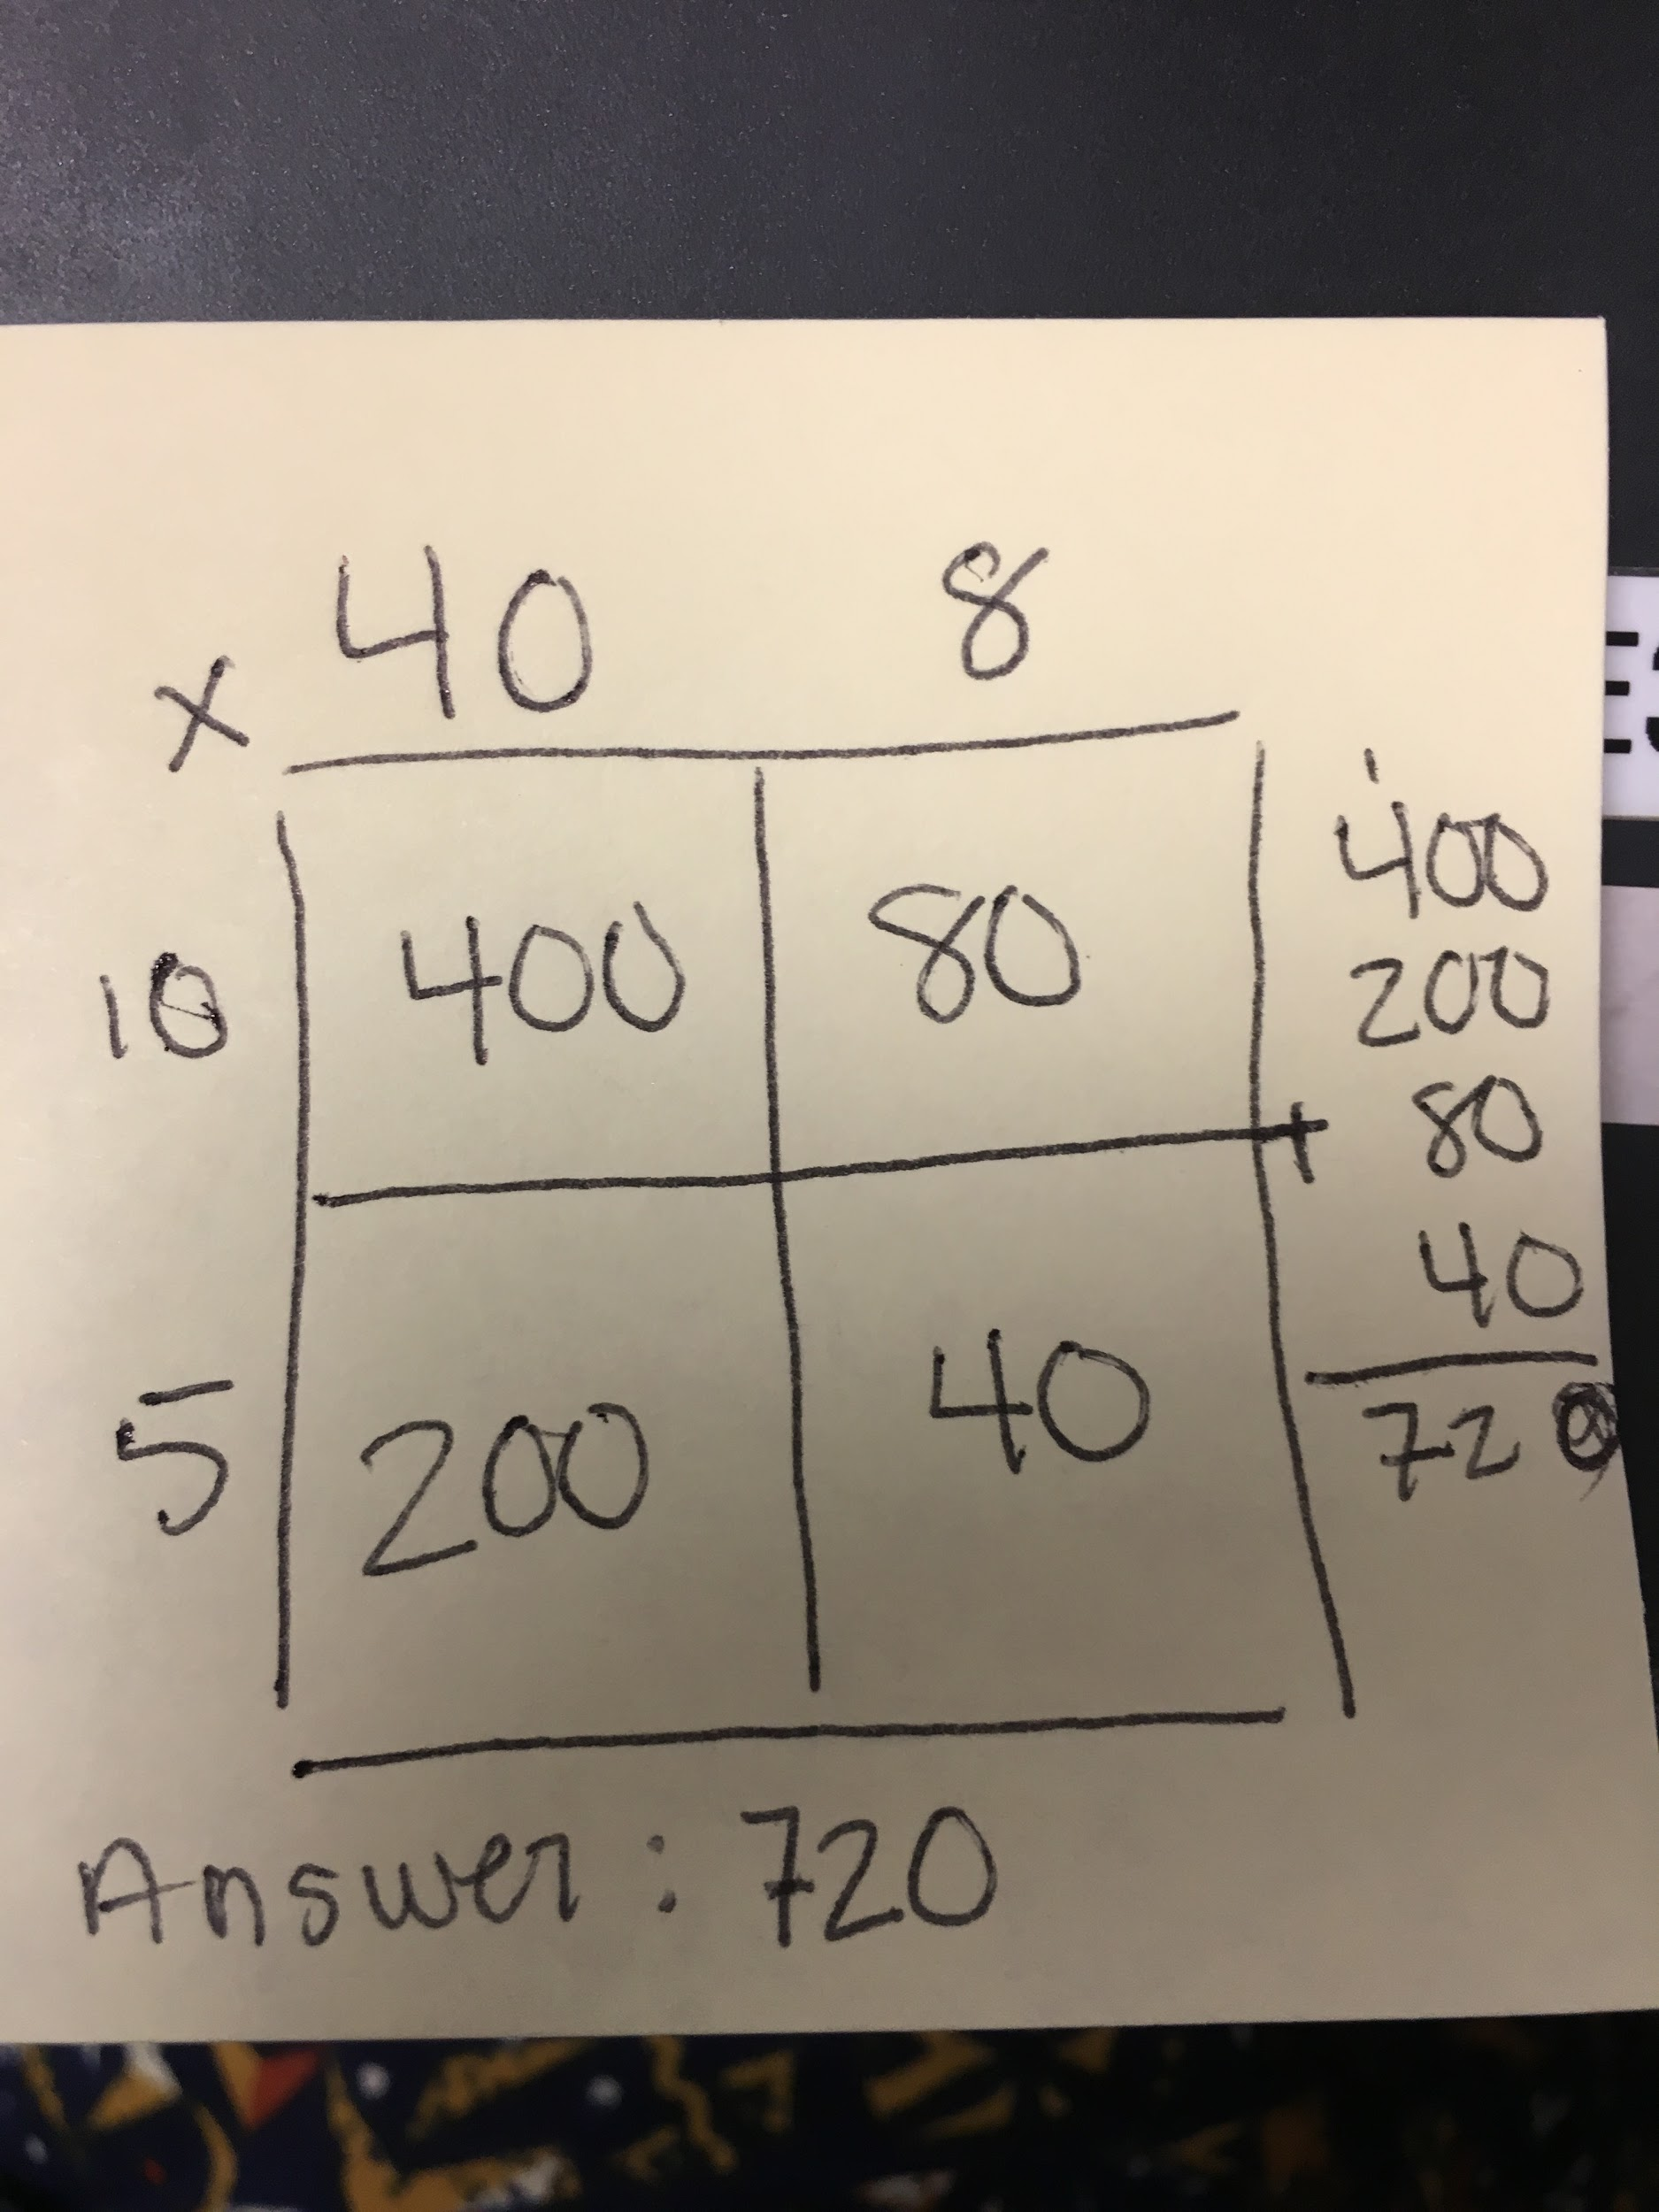 x 40 8
10 400 80
5 200 40
1
400
200
+ 80
40
720
Answer: 720